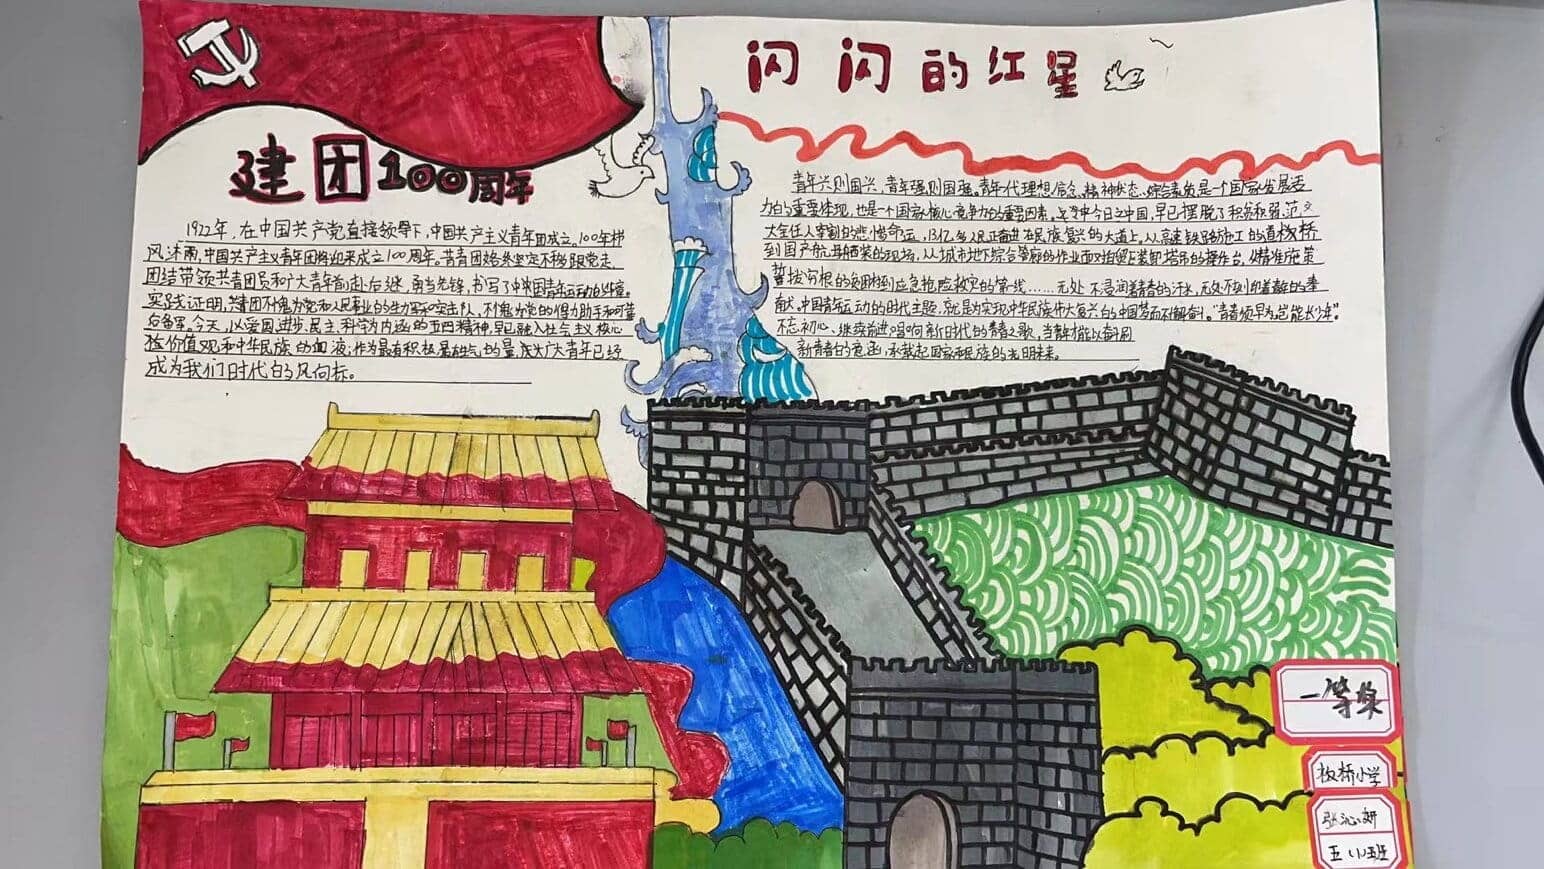 闪闪的红星
建团100周年
1922年,在中国共产党直接领导下,中国共产主义青年团成立。100年栉
风沐雨,中国共产主义青年团将迎来成立100周年。共青团始终坚定不移跟党走,
团结带领共青团员和广大青年前赴后继、勇当先锋,书写了中国青年运动的
实践证明,共青团不愧为党和人民事业的生力军和突击队,不愧为党的得力助手和可靠
后备军。今天,以爱国、进步、民主、科学为内涵的五四精神,早已融入社会主义核心
价值观和中华民族的血液,作为最有积极最有生气的量,广大青年已经
成为我们时代的风向标。
青年兴则国兴,青年强则国强。青年一代理想信念、精神状态、综合素质是一个国家发展活
力的重要体现,也是一个国家核心竞争力的重要因素。今日之中国,早已摆脱了积贫积弱
任人宰割的悲惨命运,13亿多人民正奋进在民族复兴的大道上。从高速铁路施工的
到国产航母的现场,从城市地下综合管廊的作业面对
拔穷根的贫困村到应急抢险救灾的第一线……无处不浸润着青春的汗水,无处不
献。中国青年运动的时代主题,就是为实现中华民族伟大复兴的中国梦而不懈奋斗。"青春须早为,岂能长少年"。
不忘初心、继续前进,唱响新时代的青春之歌,当
新青春的意涵,承载起国家和民族的光明未来。
一等奖
板桥小学
张沁妍
五(1)班